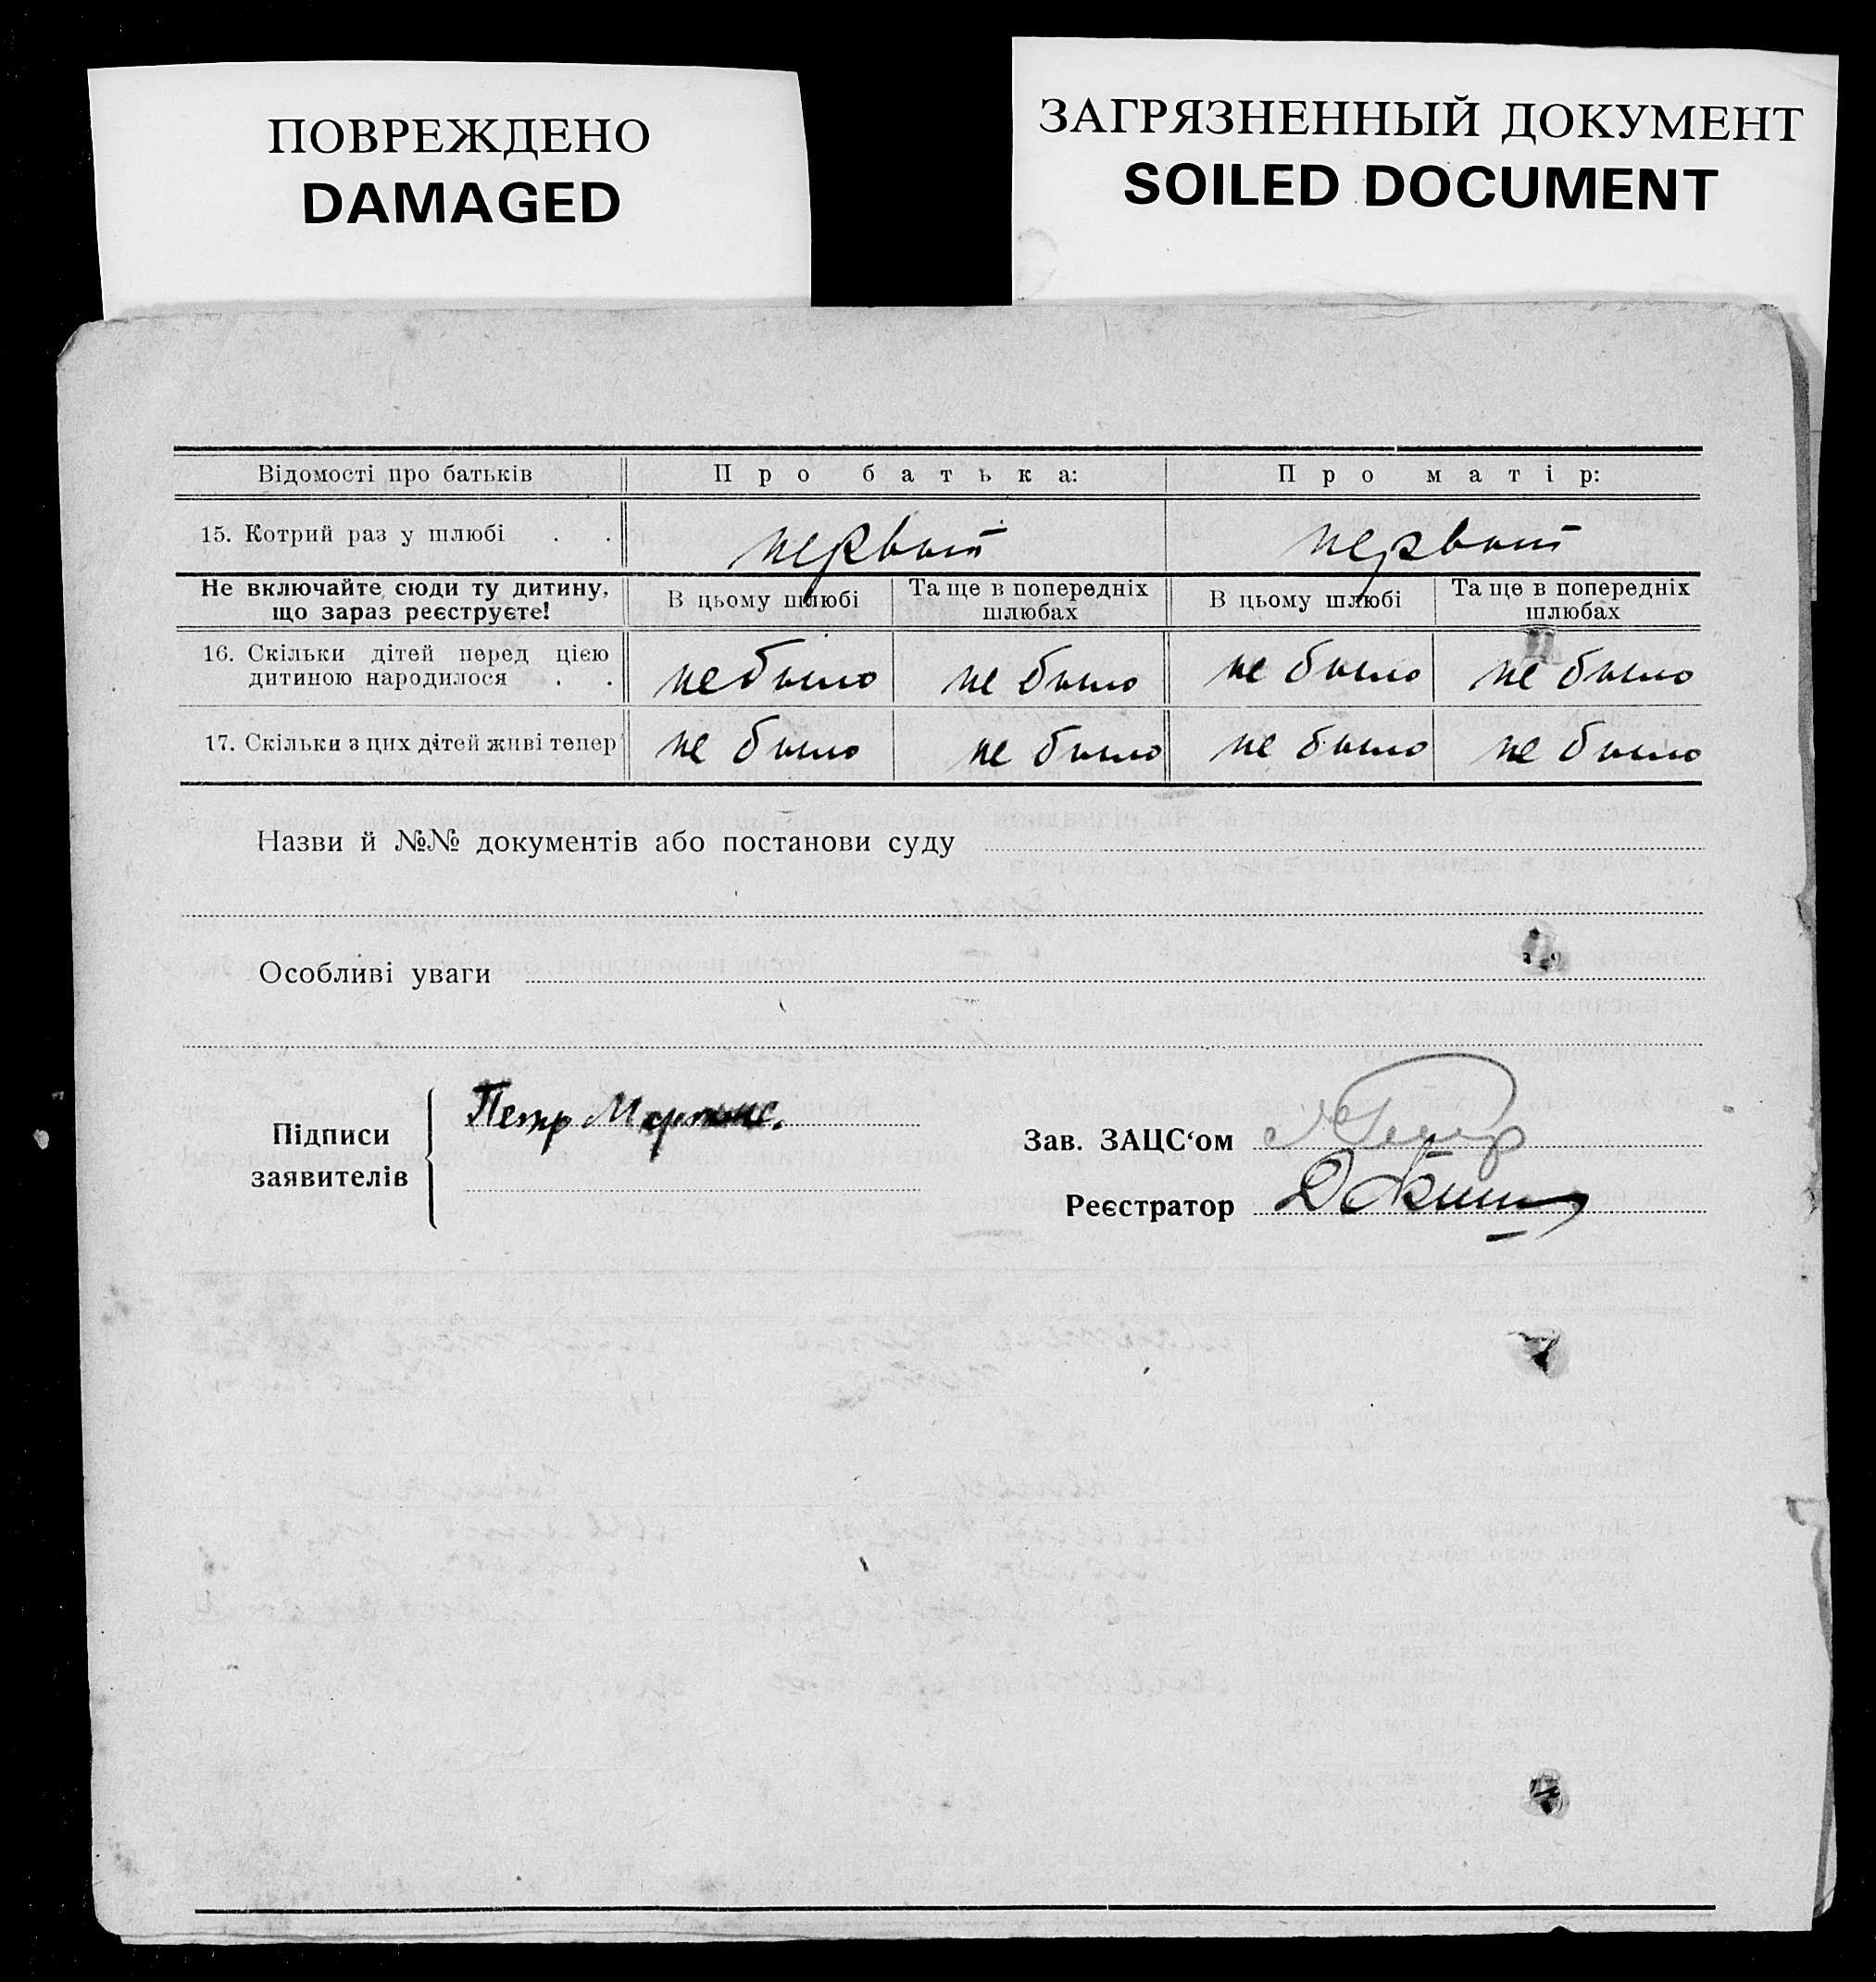 ПОВРЕЖДЕНО
DAMAGED
ЗАГРЯЗНЕННЫЙ ДОКУМЕНТ
SOILED DOCUMENT
Відомості про батьків Про батька: Про матір:
15. Котрий раз у шлюбі . . первый первый
Не включайте сюди ту дитину, що зараз реєструєте! В цьому шлюбі Та ще в попередніх шлюбах В цьому шлюбі Та ще в попередніх шлюбах
16. Скільки дітей перед цією дитиною народилося . . не было не было не было не было
17. Скільки з цих дітей живі тепер не было не было не было не было
Назви й №№ документів або постанови суду
Особливі уваги
Підписи заявителів Петр
Зав. ЗАЦС‘ом
Реєстратор